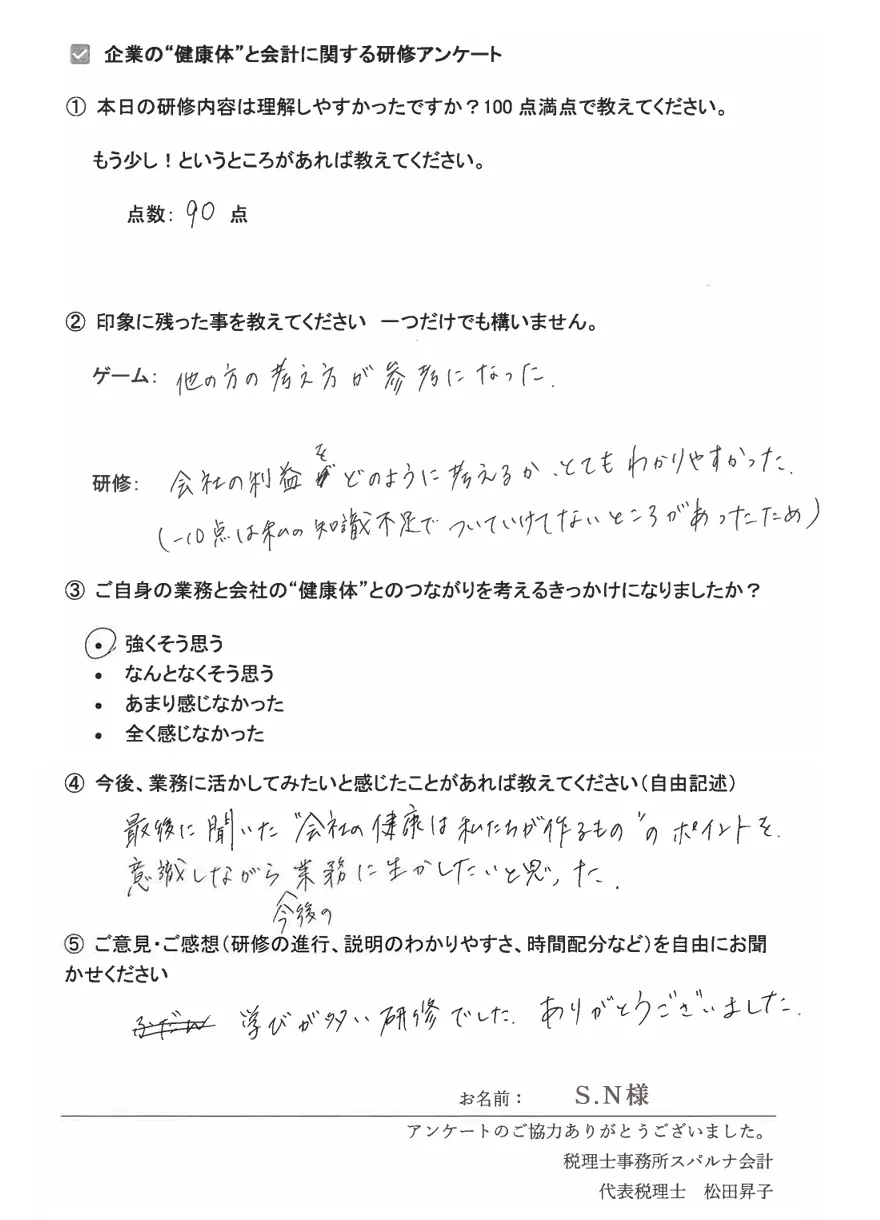 企業の“健康体”と会計に関する研修アンケート
① 本日の研修内容は理解しやすかったですか？100 点満点で教えてください。
もう少し！というところがあれば教えてください。
点数： 90 点
② 印象に残った事を教えてください　一つだけでも構いません。
ゲーム： 他の方の考え方が参考になった.
研修： 会社の利益をどのように考えるか、とてもわかりやすかった.
(-10点は私の知識不足でついていけてないところがあったため)
③ ご自身の業務と会社の“健康体”とのつながりを考えるきっかけになりましたか？
• 強くそう思う
• なんとなくそう思う
• あまり感じなかった
• 全く感じなかった
④ 今後、業務に活かしてみたいと感じたことがあれば教えてください（自由記述）
最後に聞いた“会社の健康は私たちが作るもの”のポイントを
意識しながら今後の業務に生かしたいと思った.
⑤ ご意見・ご感想（研修の進行、説明のわかりやすさ、時間配分など）を自由にお聞
かせください
学びが多い研修でした. ありがとうございました.
お名前： S.N様
アンケートのご協力ありがとうございました。
税理士事務所スパルナ会計
代表税理士　松田昇子